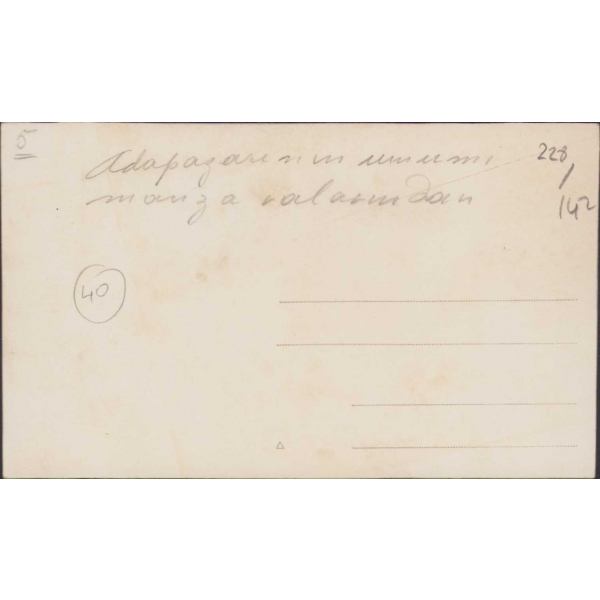 5
Adapazarının umumi
manzaralarından
228
/
142
40